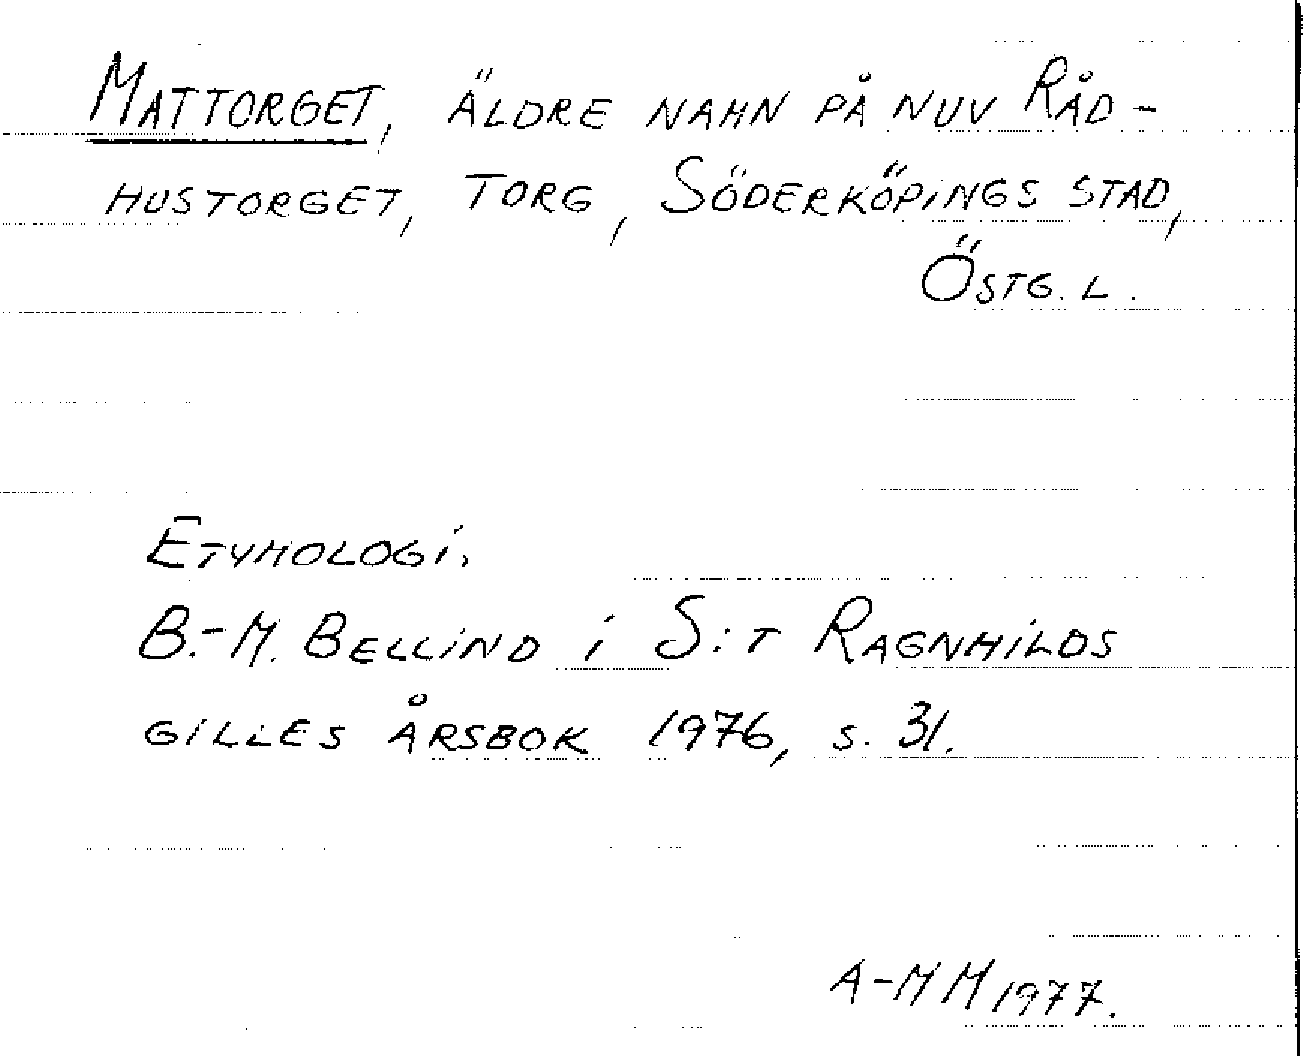 MATTORGET, ÄLDRE NAMN PÅ NUV RÅD-
HUSTORGET, TORG, SÖDERKÖPINGS STAD,
ÖSTG. L.
ETYMOLOGI.
B.-M. BELLIND I S:T RAGNHILDS
GILLES ÅRSBOK 1976, S. 31.
A-MM 1977.